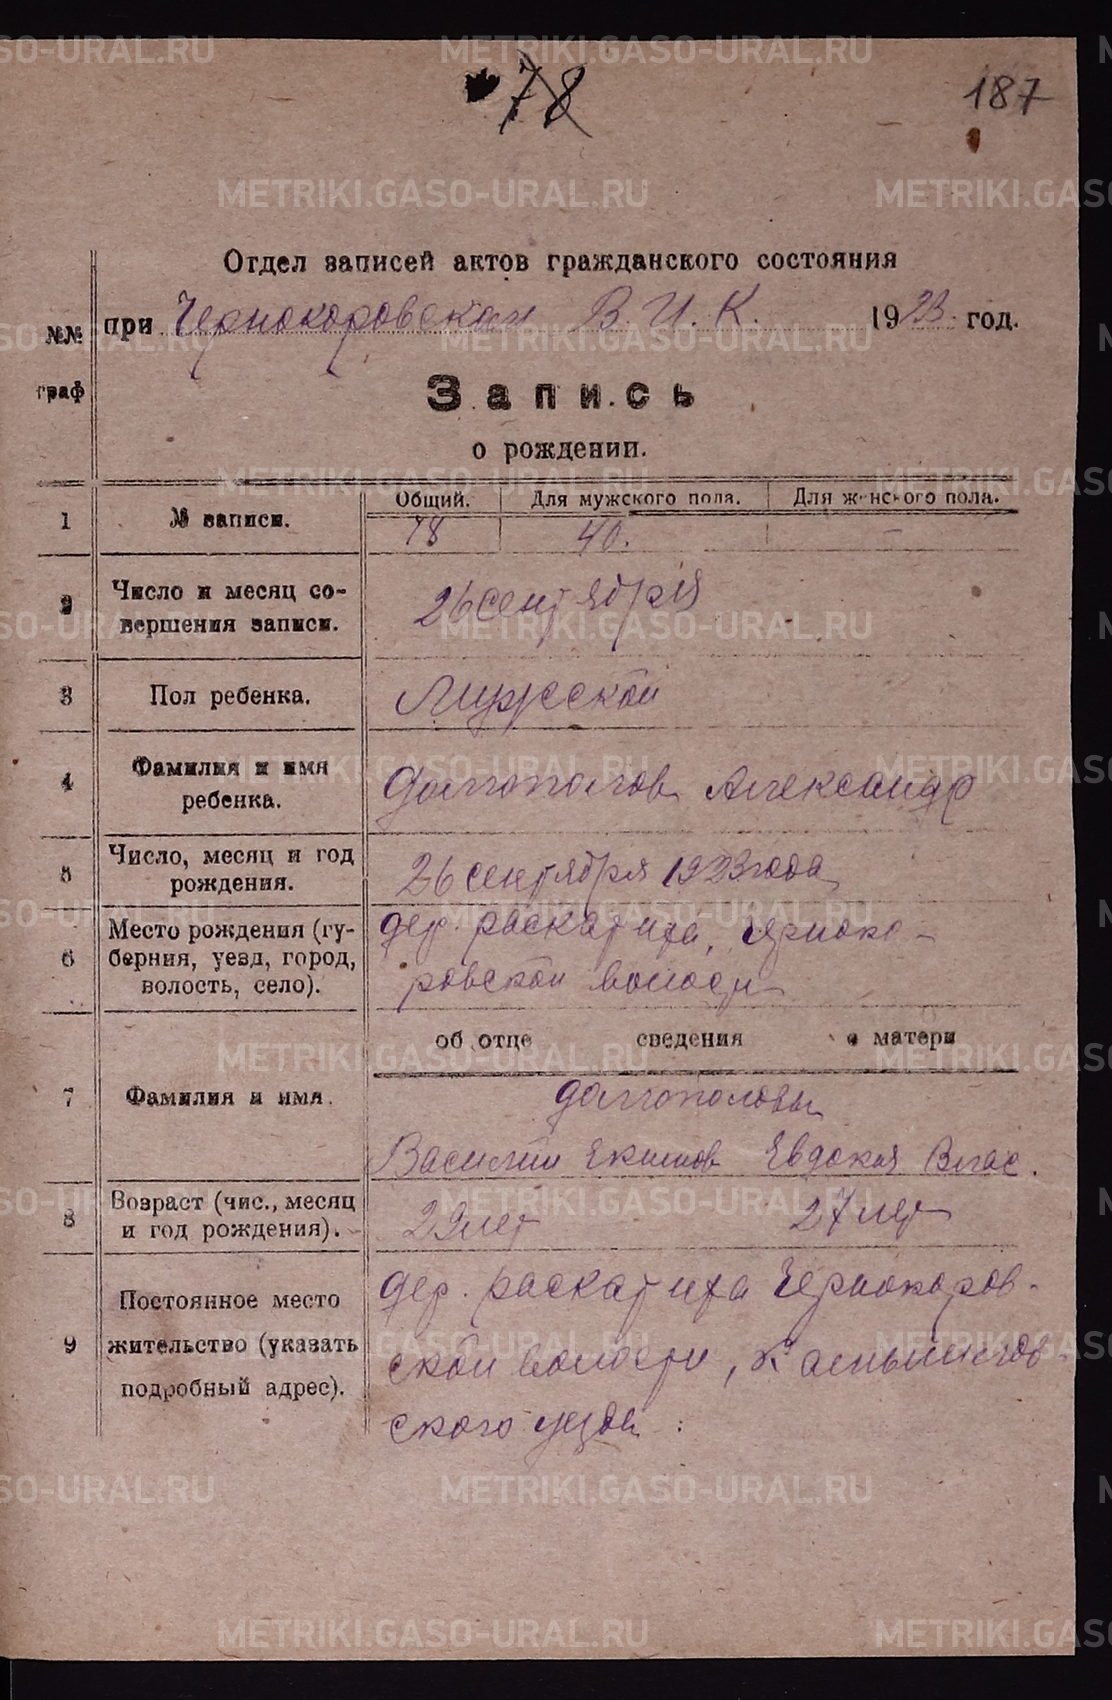 78
187
Отдел записей актов гражданского состояния
при Чернокоровском В. И. К. 1923 год.
№№ граф
Запись
о рождении.
Общий. Для мужского пола. Для женского пола.
1 № записи. 78 40. –
2 Число и месяц со-
вершения записи. 26 сентября
3 Пол ребенка. Мужской
4 Фамилия и имя
ребенка. Долгополов Александр
5 Число, месяц и год
рождения. 26 сентября 1923 года
6 Место рождения (гу-
берния, уезд, город,
волость, село). дер. Раскатиха, Черноко-
ровской волости
об отце сведения о матери
7 Фамилия и имя. Долгополовы
Василий Екимов Евдокия Влас.
8 Возраст (чис., месяц
и год рождения). 29 лет 27 лет
9 Постоянное место
жительство (указать
подробный адрес). дер. Раскатиха Чернокоров-
ской волости, Камышлов-
ского уезда.
METRIKI.GASO-URAL.RU